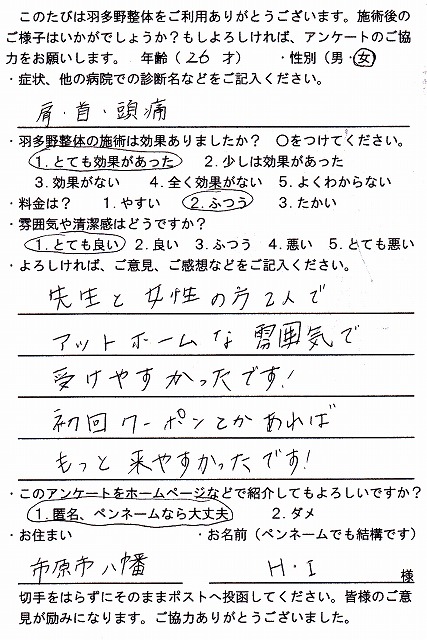 このたびは羽多野整体をご利用ありがとうございます。施術後の
ご様子はいかがでしょうか？もしよろしければ、アンケートのご協
力をお願いします。 年齢（２６ 才） ・性別（男・女）
・症状、他の病院での診断名などをご記入ください。
肩・首・頭痛
・羽多野整体の施術は効果ありましたか？ 〇をつけてください。
1. とても効果があった 2. 少しは効果があった
3. 効果がない 4. 全く効果がない 5. よくわからない
・料金は？ 1. やすい 2. ふつう 3. たかい
・雰囲気や清潔感はどうですか？
1. とても良い 2. 良い 3. ふつう 4. 悪い 5. とても悪い
・よろしければ、ご意見、ご感想などをご記入ください。
先生と女性の方2人で
アットホームな雰囲気で
受けやすかったです！
初回クーポンとかあれば
もっと来やすかったです！
・このアンケートをホームページなどで紹介してもよろしいですか？
1. 匿名、ペンネームなら大丈夫 2. ダメ
・お住まい ・お名前（ペンネームでも結構です）
市原市八幡 H・I 様
切手をはらずにそのままポストへ投函してください。皆様のご意
見が励みになります。ご協力ありがとうございました。